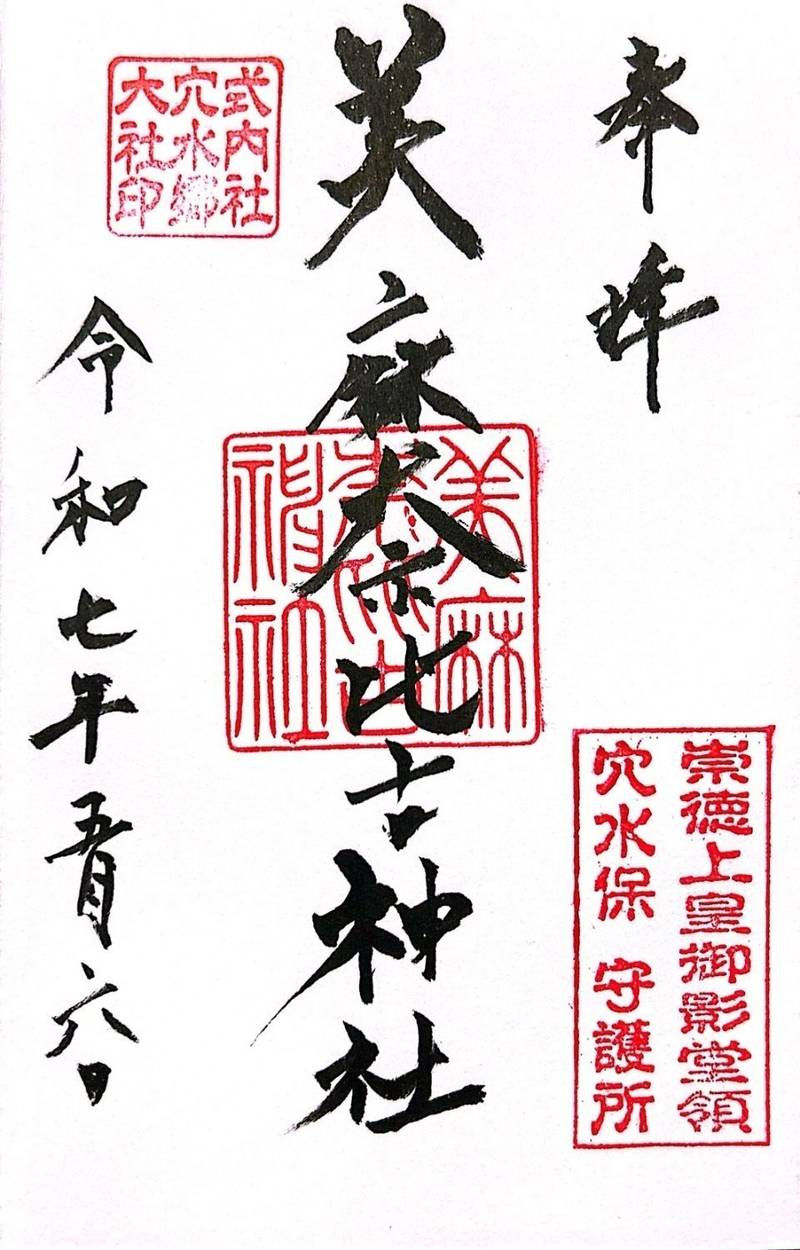 奉拝
崇徳上皇御影堂領
穴水保 守護所
美麻奈比古神社
美麻
奈比古
神社
式内社
穴水郷
大社印
令和七年五月六日